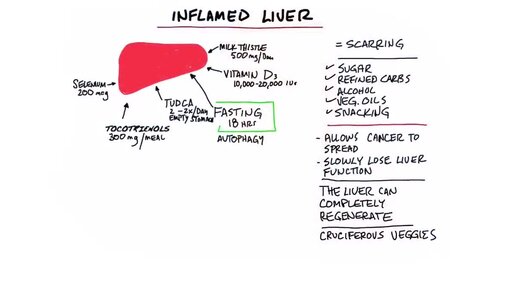 INFLAMED LIVER
MILK THISTLE
500 mg/DAY
VITAMIN D3
10,000-20,000 IUs
SELENIUM
200 mcg
TUDCA
2-2X/DAY
EMPTY STOMACH
TOCOTRIENOLS
300 mg/MEAL
FASTING
18 HRS
AUTOPHAGY
= SCARRING
✓ SUGAR
✓ REFINED CARBS
✓ ALCOHOL
✓ VEG. OILS
✓ SNACKING
- ALLOWS CANCER TO
SPREAD
- SLOWLY LOSE LIVER
FUNCTION
THE LIVER CAN
COMPLETELY
REGENERATE
CRUCIFEROUS VEGGIES